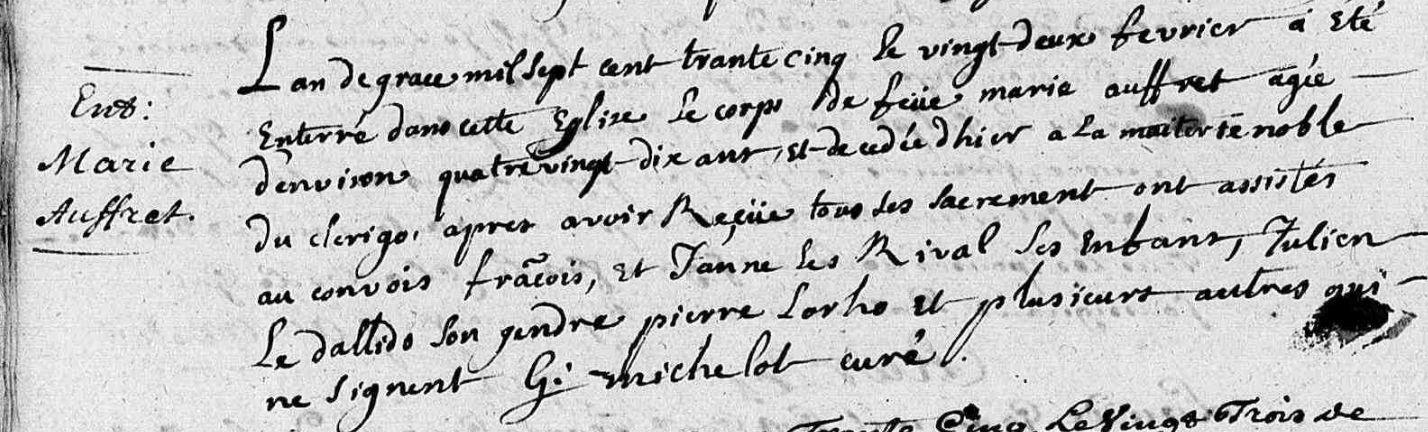 Ent&:
Marie
Auffret.
Lan de grace mil sept cent trante cinq le vingt deux fevrier a été
Enterré dans cette Eglise Le corps de feüe marie auffret agée
d'environ quatre vingt dix ans, et decedée d'hier a la maiterie noble
du clerigo, apres avoir Reçüe tous ses sacrement ont assistés
au convois frãcois, et Janne les Rival ses Enfans, Julien
Le dallido son gendre pierre Lorho et plusieurs autres qui
ne signent G: michelot curé.
Trante Cinq Le Vingt Trois de